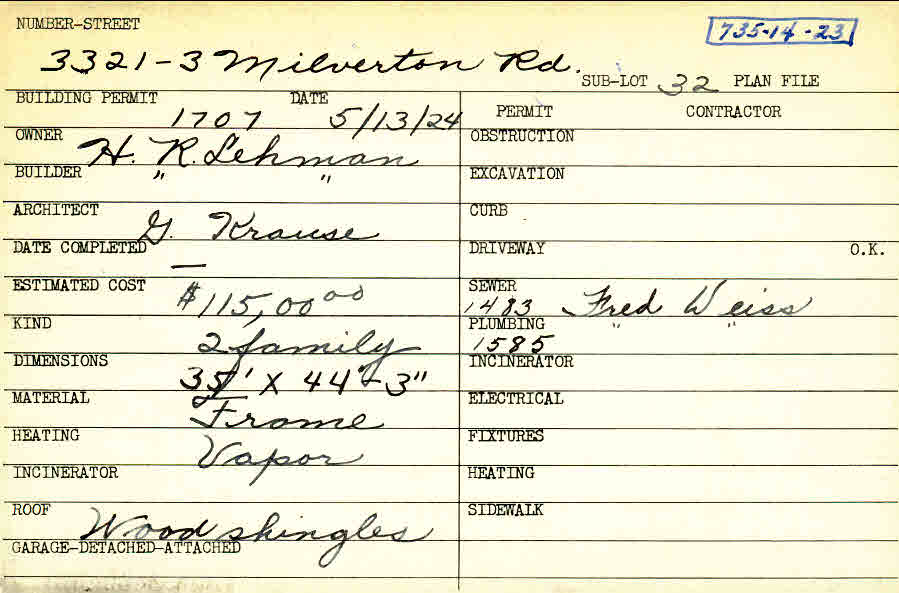 NUMBER-STREET
735-14-23
3321-3 Milverton Rd.
SUB-LOT 32 PLAN FILE
BUILDING PERMIT 1707 DATE 5/13/24
OWNER H. R. Lehman
BUILDER " "
ARCHITECT G. Krause
DATE COMPLETED —
ESTIMATED COST $115,00 00
KIND 2 family
DIMENSIONS 35' X 44'-3"
MATERIAL Frame
HEATING Vapor
INCINERATOR
ROOF Wood shingles
GARAGE-DETACHED-ATTACHED
PERMIT CONTRACTOR
OBSTRUCTION
EXCAVATION
CURB
DRIVEWAY O.K.
SEWER 1483 Fred Weiss
PLUMBING 1585 " "
INCINERATOR
ELECTRICAL
FIXTURES
HEATING
SIDEWALK